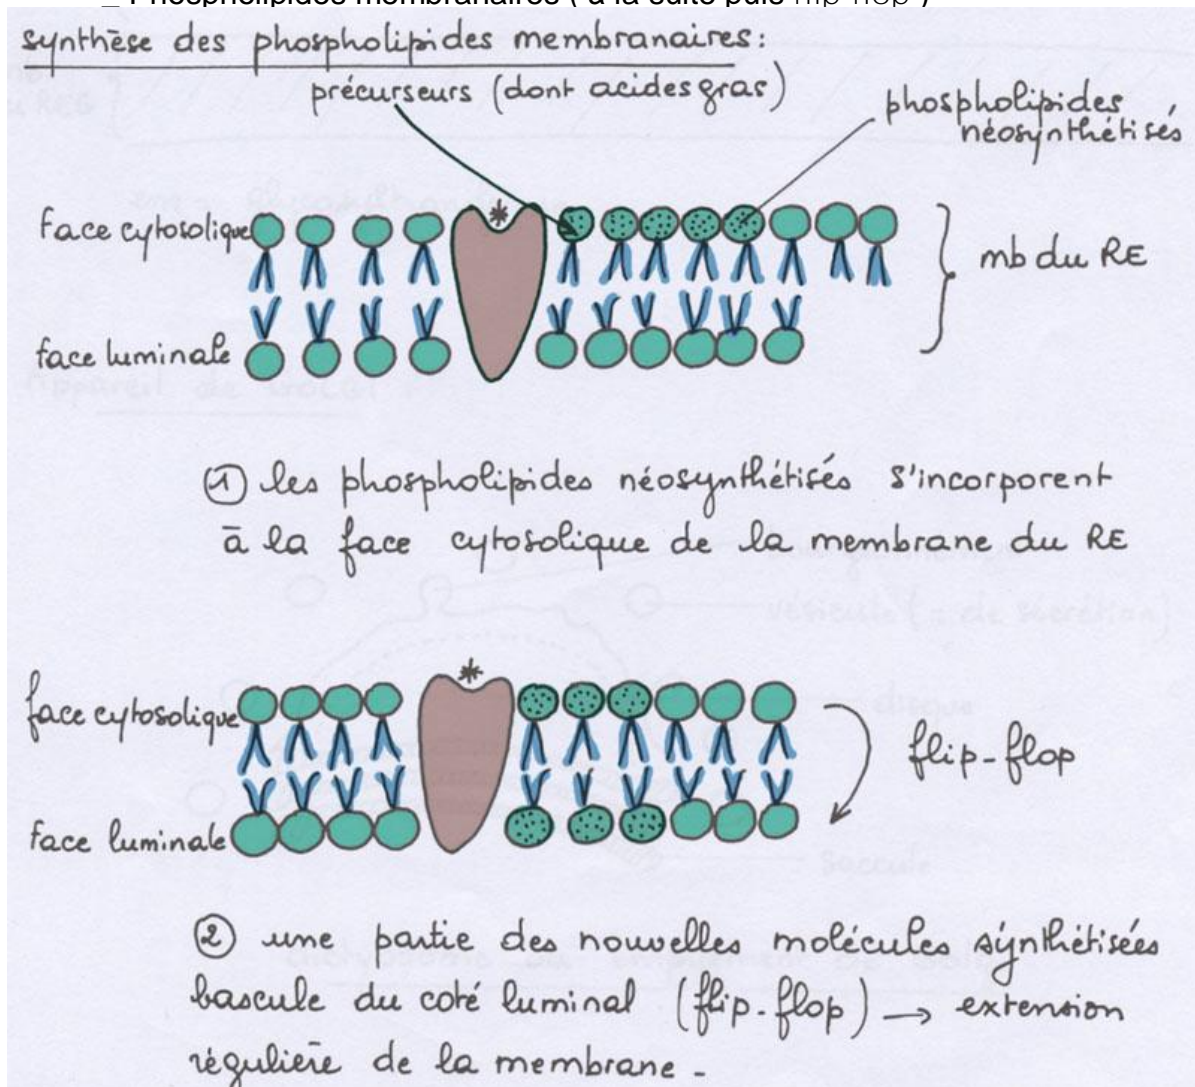 _ Phospholipides membranaires ( à la suite puis flip-flop )
synthèse des phospholipides membranaires:
précurseurs (dont acides gras)
phospholipides
néosynthétisés
face cytosolique
mb du RE
face luminale
① les phospholipides néosynthétisés s'incorporent
à la face cytosolique de la membrane du RE
face cytosolique
flip-flop
face luminale
② une partie des nouvelles molécules synthétisées
bascule du coté luminal (flip-flop) → extension
régulière de la membrane -